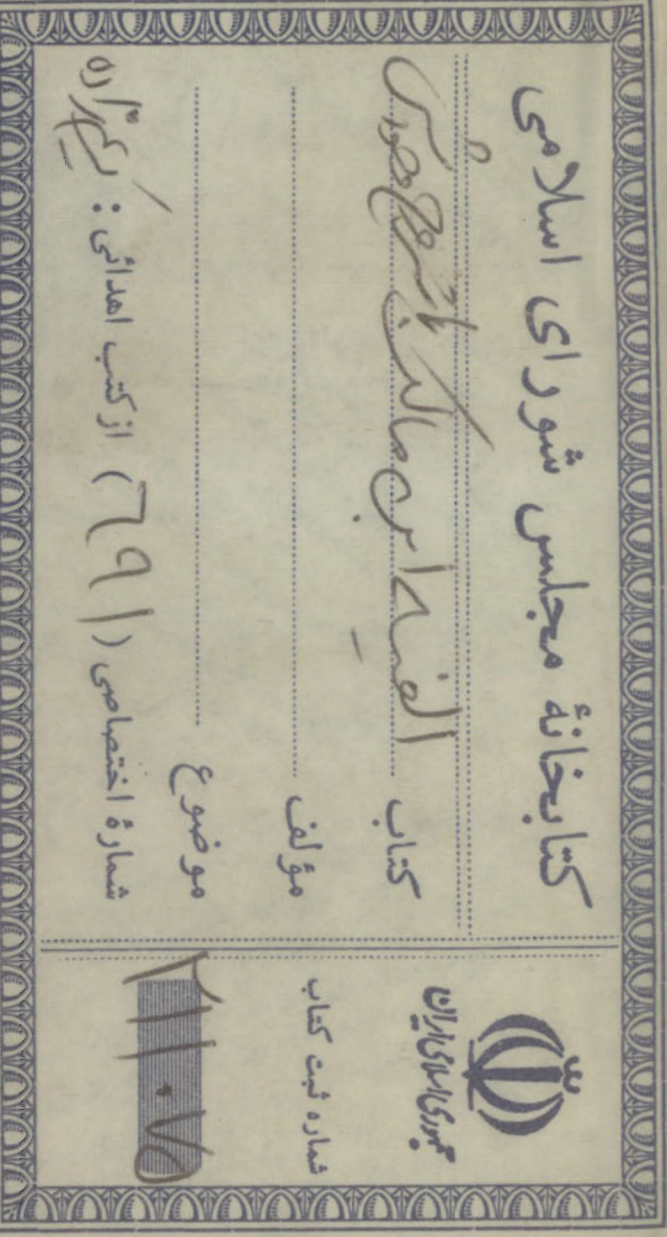 کتابخانهٔ مجلس شورای اسلامی
کتاب الفیه ابن مالک با شرح
مؤلف
موضوع
شمارهٔ اختصاصی (۶۹۱) از کتب اهدائی :
جمهوری اسلامی ایران
شماره ثبت کتاب